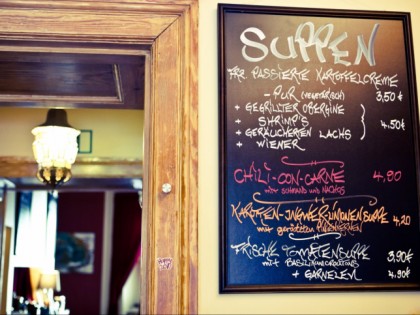 SUPPEN
FR. PASSIERTE KARTOFFELCREME
- PUR (VEGETARISCH) 3,50 €
+ GEGRILLTER OBERGINE
+ SHRIMP'S
+ GERÄUCHERTEN LACHS } 4,50€
+ WIENER
CHILI-CON-CARNE 4,90
mit SCHMAND und NACHOS
KAROTTEN-INGWER-LIMONENSUPPE 4,20
mit gerösteten
FRISCHE TOMATENSUPPE 3,90€
mit
+ GARNELEN 4,90€